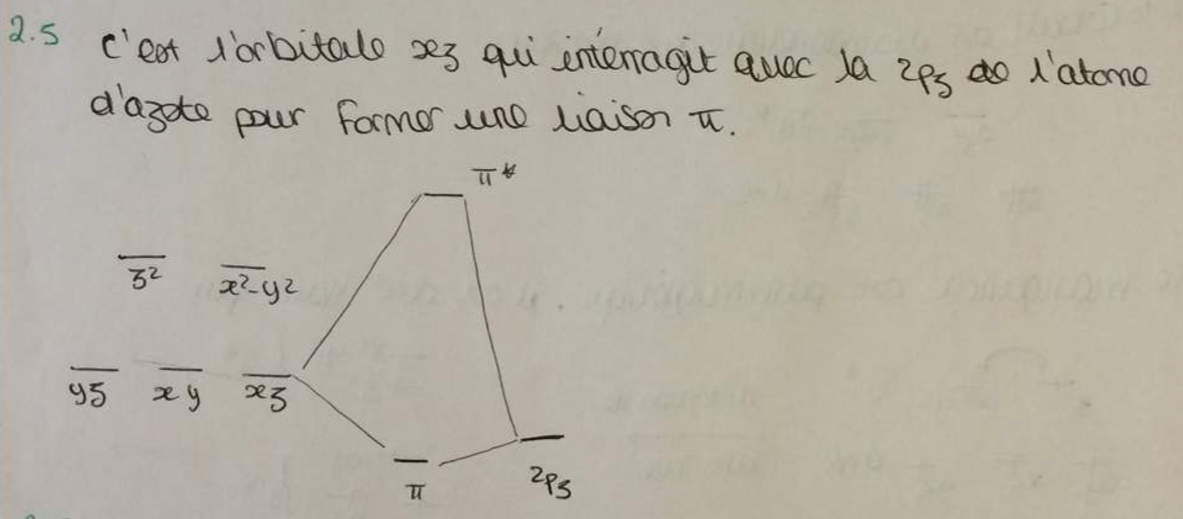 2.5 C'est l'orbitale xz qui intérragit avec la 2pz de l'atome
d'azote pour former une liaison π.
π*
z² x²-y²
yz xy xz
π 2pz